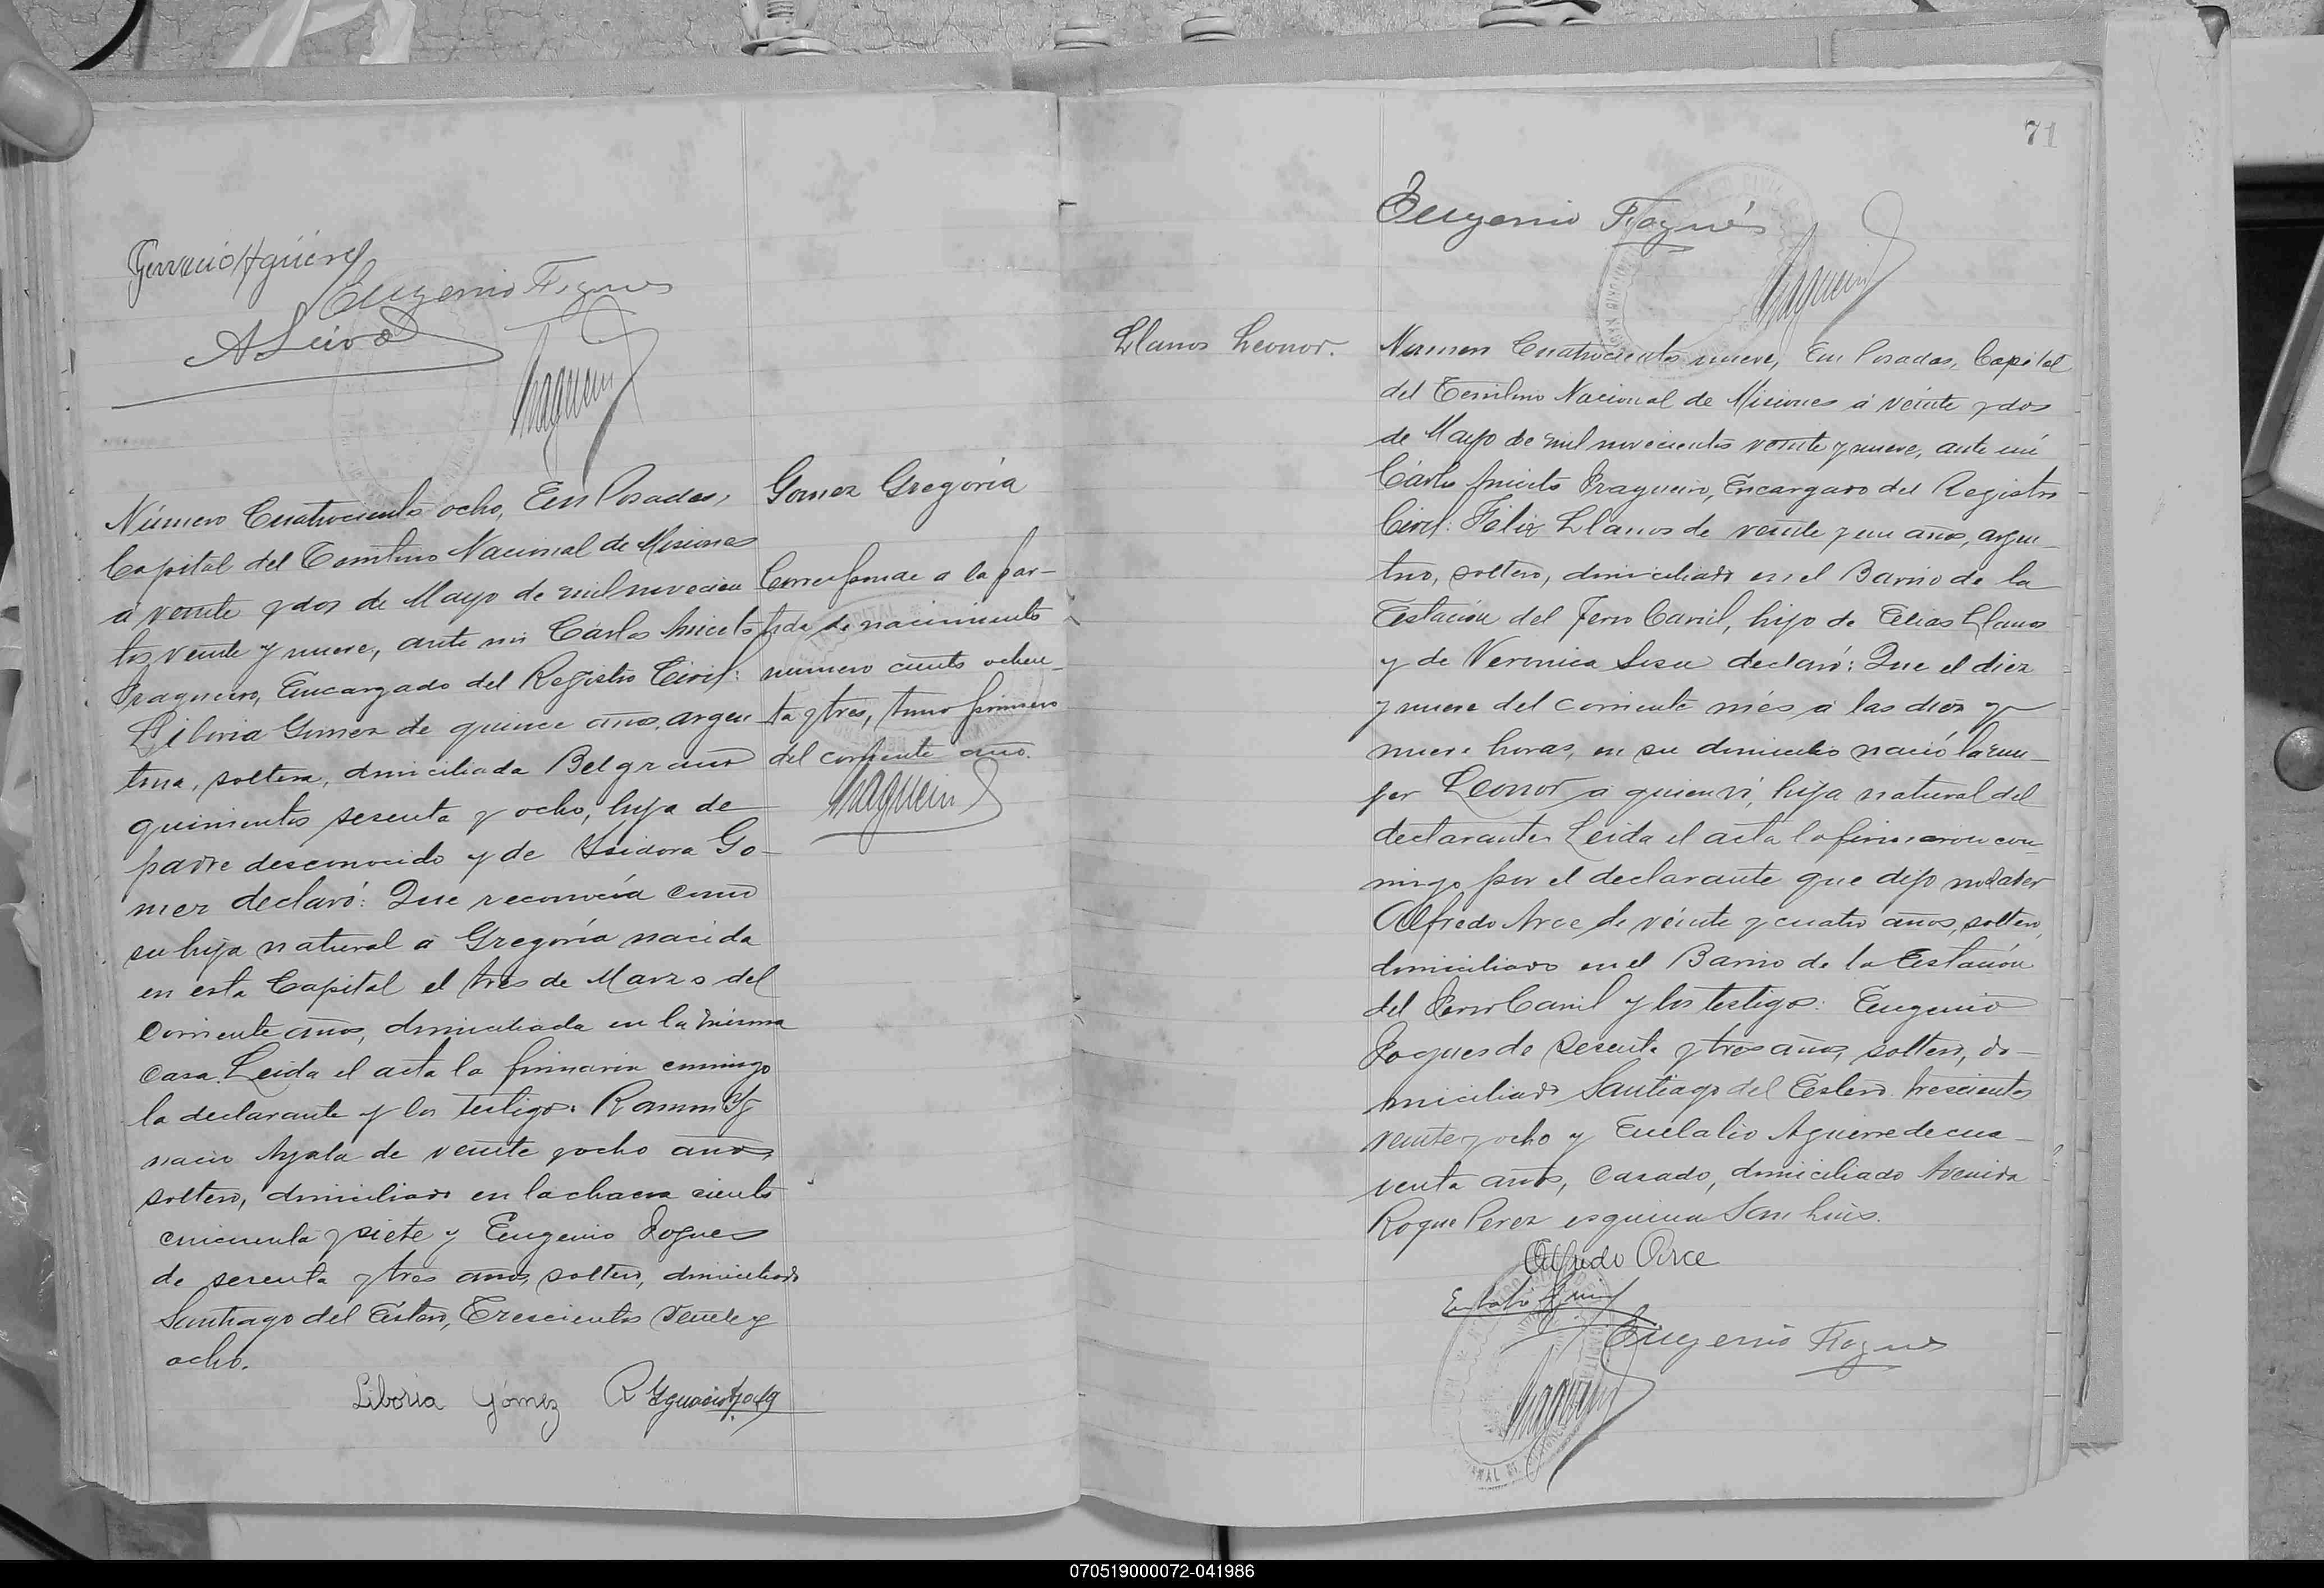 Eugenio Fogues
Número Cuatrocientos ocho, En Posadas,
Capital del Territorio Nacional de Misiones
a veinte y dos de Mayo de mil novecien
tos veinte y nueve, ante mi Cárlos Aniceto
Fragueiro, Encargado del Registro Civil:
Liboria Gomez de quince años, argen
tina, soltera, domiciliada Belgrano
quinientos sesenta y ocho, hija de
padre desconocido y de Isidora Go-
mez declaró: Que reconocía como
su hija natural a Gregoria nacida
en esta Capital el tres de Marzo del
corriente año, domiciliada en la misma
casa. Leida el acta la firmaron conmigo
la declarante y los testigos: Ramon Yg
nacio Ayala de veinte y ocho años,
soltero, domiciliado en la chacra ciento
cincuenta y siete y Eugenio Fogues
de sesenta y tres años, soltero, domiciliado
Santiago del Estero, Trescientos veinte y
ocho.
Liboria Gómez R Ygnacio Ayala
Gomez Gregória
Corresponde a la par-
tida de nacimiento
numero ciento ochen-
ta y tres, tomo primero
del corriente año.
71
Eugenio Fogués
Llanos Leonor.
Numero Cuatrocientos nueve, En Posadas, Capital
del Territorio Nacional de Misiones á veinte y dos
de Mayo de mil novecientos veinte y nueve, ante mi
Cárlos Aniceto Fragueiro, Encargado del Registro
Civil: Félix Llanos de veinte y un años, argen-
tino, soltero, domiciliado en el Barrio de la
Estación del Ferro Carril, hijo de Elias Llanos
y de Veronica Sosa declaró: Que el diez
y nueve del corriente més a las diez y
nueve horas, en su domicilio nació la mu-
jer Leonor a quien vi, hija natural del
declarante. Leida el acta la firmaron con-
migo por el declarante que dijo no saber
Alfredo Arce de veinte y cuatro años, soltero,
domiciliado en el Barrio de la Estación
del Ferro Carril y los testigos: Eugenio
Fogues de sesenta y tres años, soltero, do-
miciliado Santiago del Estero trescientos
veinte y ocho y Eulalio Aguirre de cua-
renta años, casado, domiciliado Avenida
Roque Perez esquina San Luis.
Alfredo Arce
Eugenio Fogues
070519000072-041986